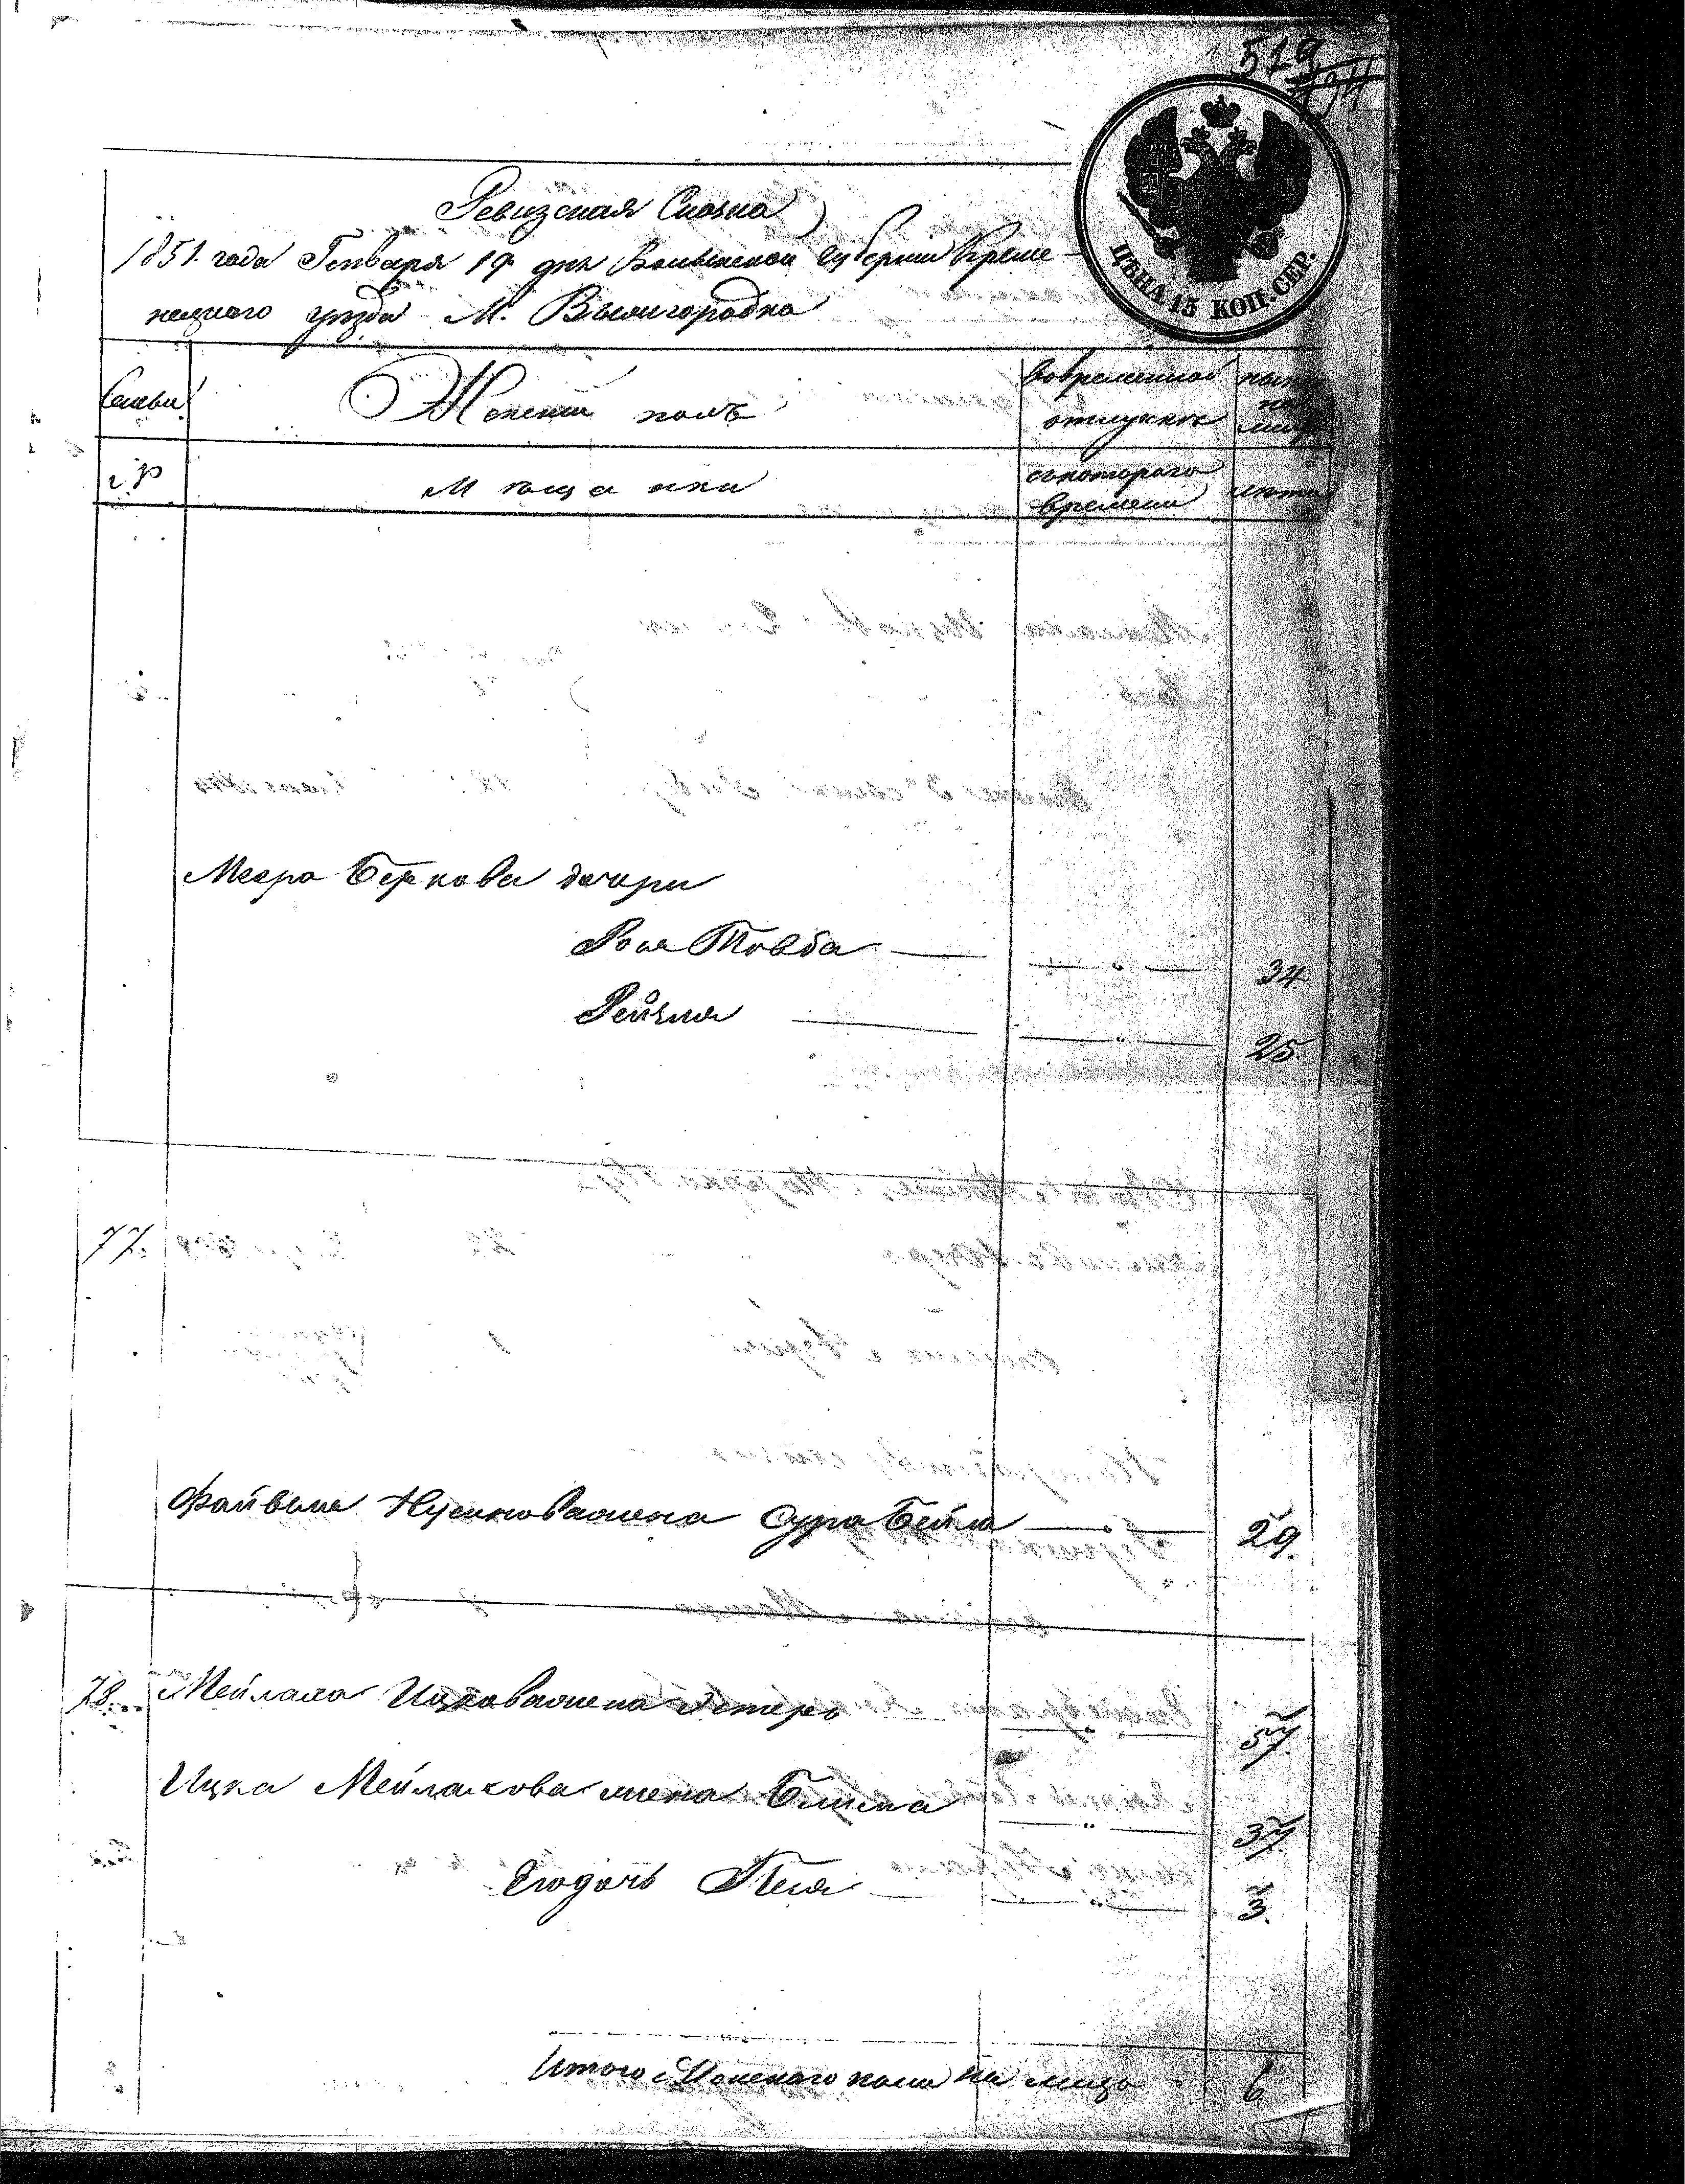 519
ЦѢНА 15 КОП. СЕР.
Ревизская Сказка
1851. года Генваря 19 дня Волынской Губерніи Креме-
нецкаго уѣзда М. Вышгородка
Семьи
Женскій полъ
Вовременной отлучкѣ
ныне на лицо
Мѣщанки
съкотораго времени
лѣта
Меера Беркова дочери
Роля Товба 34
Рейзля 25
77.
Файвеля Нусиноважена Сура Бейла 29.
78. Мейлаха Ицковажена Эстеръ 57.
Ицка Мейлахова жена Блима 37.
Егодочь Песя 3.
Итого Женскаго пола на лицо 6